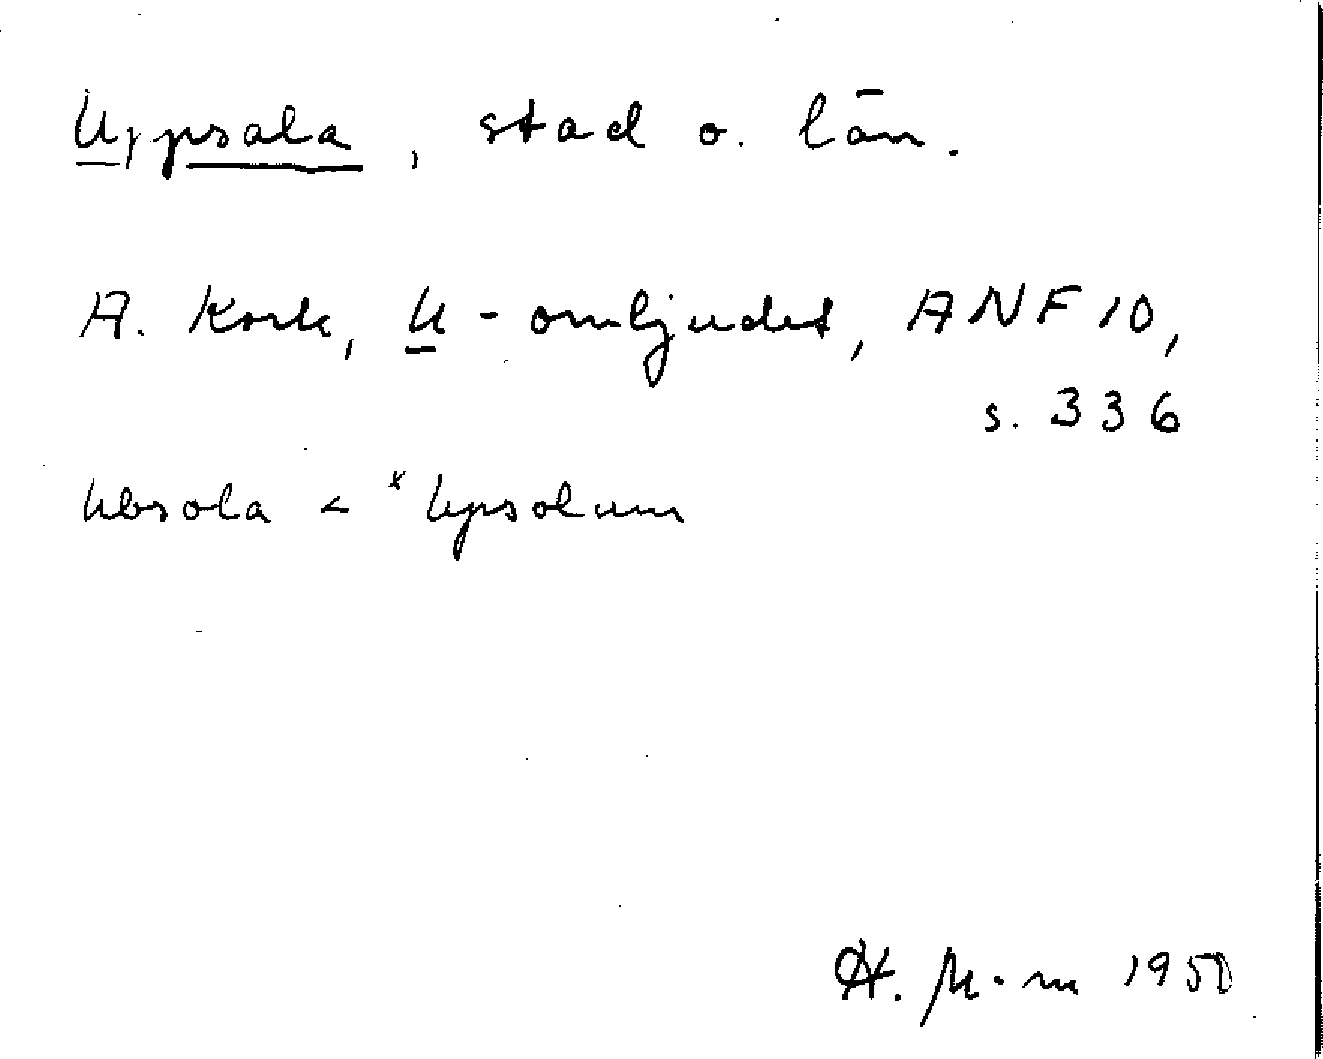 Uppsala, stad o. län.
A. Kock, U-omljudet, ANF 10,
s. 336
Ubsola < *Upsolum
H. M-m 1950